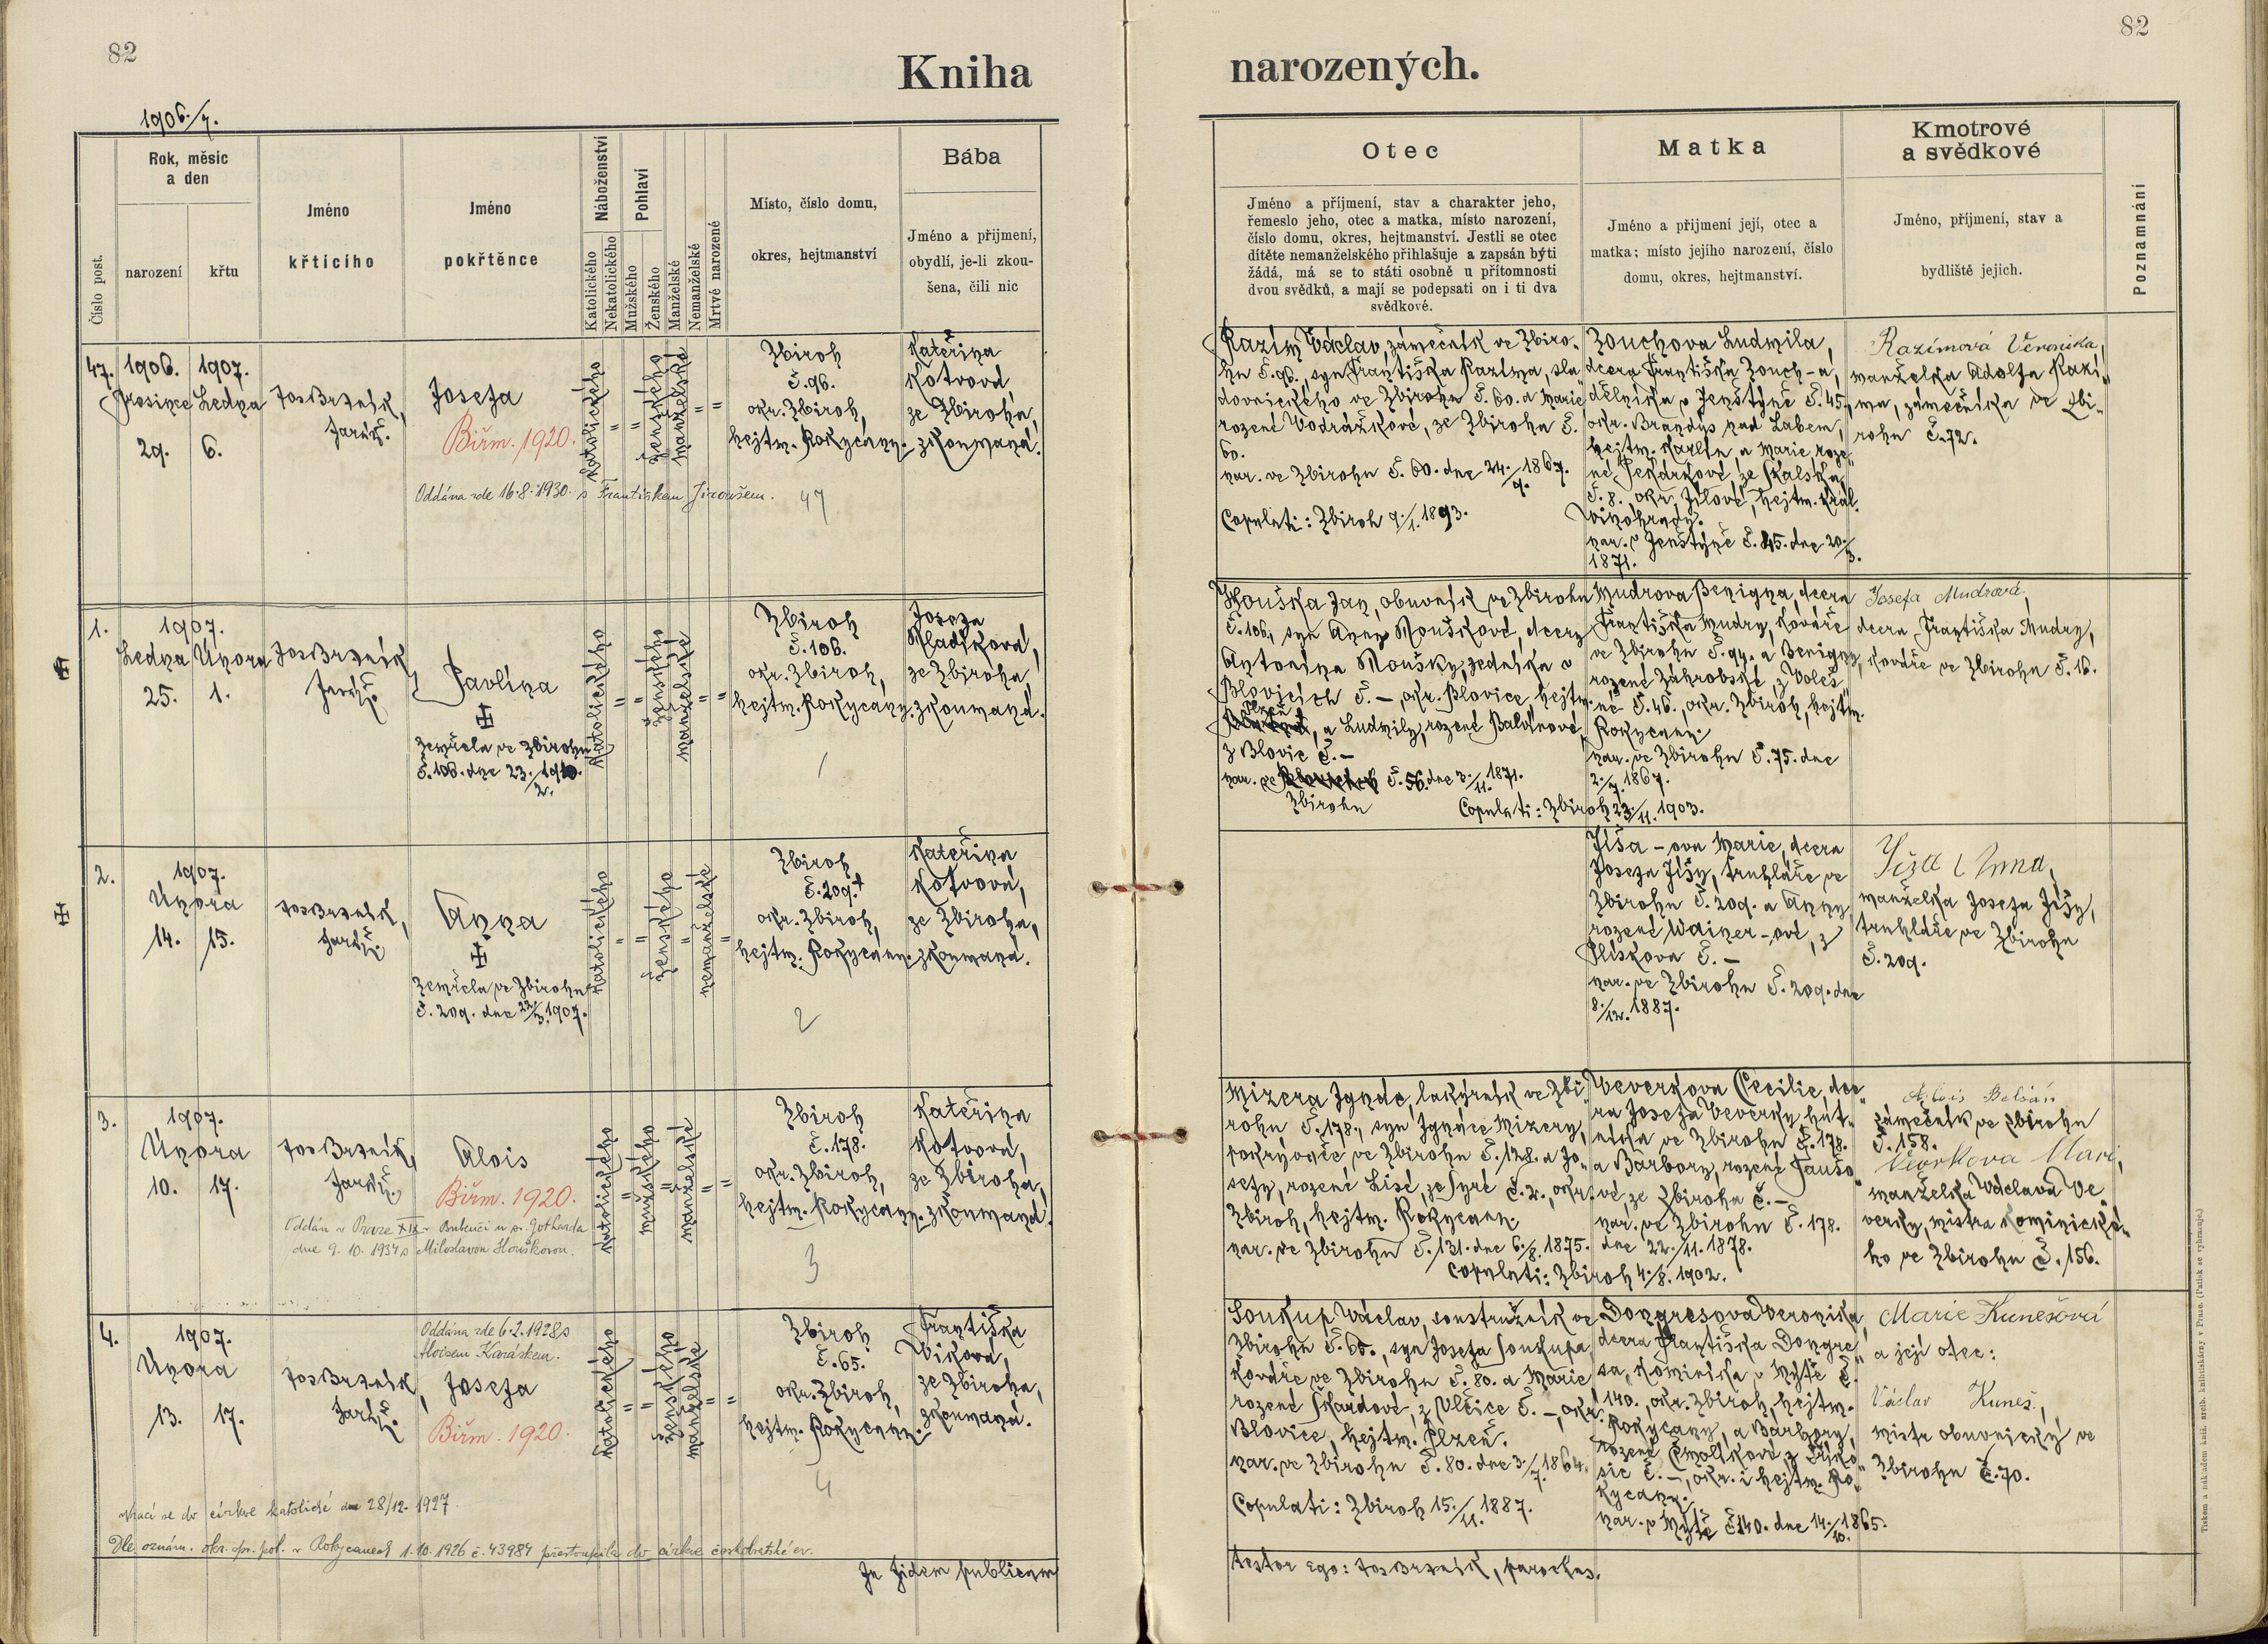 82
82
Kniha
narozených.
1906./7.
Číslo post.
Rok, měsíc
a den
narození
křtu
Jméno
křtícího
Jméno
pokřtěnce
Náboženství
Katolického
Nekatolického
Pohlaví
Mužského
Ženského
Manželské
Nemanželské
Mrtvé narozené
Místo, číslo domu,
okres, hejtmanství
Bába
Jméno a přijmení,
obydlí, je-li zkou-
šena, čili nic
Otec
Jméno a příjmení, stav a charakter jeho,
řemeslo jeho, otec a matka, místo narození,
číslo domu, okres, hejtmanství. Jestli se otec
dítěte nemanželského přihlašuje a zapsán býti
žádá, má se to státi osobně u přítomnosti
dvou svědků, a mají se podepsati on i ti dva
svědkové.
Matka
Jméno a přijmení její, otec a
matka; místo jejího narození, číslo
domu, okres, hejtmanství.
Kmotrové
a svědkové
Jméno, příjmení, stav a
bydliště jejich.
Poznamnání
47.
1906.
Prosince
29.
1907.
Ledna
6.
Jos Brzník,
farář.
Josefa
Biřm. 1920.
Oddána zde 16.8.1930 s Františkem Jiroušem.
katolického
ženského
manželské
Zbiroh
č. 96.
okr. Zbiroh,
hejtm. Rokycany.
47
Kateřina
Kotvová
ze Zbiroha,
zkoumaná.
Razím Václav, zámečník ve Zbiro-
hu č. 96., syn Františka Razíma, sla
dovnického ve Zbirohu č. 60. a Marie
rozené Vodrážkové, ze Zbiroha č.
60.
nar. ve Zbirohu č. 60. dne 24./9. 1867.
Copulati: Zbiroh 9./1. 1893.
Zouchova Ludmila,
dcera Františka Zouch-a,
dělníka v Jenštýně č. 45.,
okr. Brandýs nad Labem,
hejtm. Karlín, a Marie roze-
né Pekárkové, ze Skalska
č. 8. okr. Jílové, hejtm. Král.
Vinohrady.
nar. v Jenštýně č. 45. dne 20./3.
1871.
Razímová Veronika,
manželka Adolfa Razí-
ma, zámečníka ve Zbi-
rohu č. 72.
1.
1907.
Ledna
25.
Února
1.
Jos Brzník,
farář.
Pavlína
Zemřela ve Zbirohu
č. 106. dne 23./2. 1910.
katolického
ženského
manželské
Zbiroh
č. 106.
okr. Zbiroh,
hejtm. Rokycany.
1
Josefa
Mladíková,
ze Zbiroha,
zkoumaná.
Houška Jan, obuvník ve Zbirohu
č. 106., syn Anny Houškové, dcery
Antonína Houšky, zedníka v
Blovicích č. –, okr. Blovice, hejtm.
Plzeň, a Ludmily, rozené Balvínové
z Blovic č. –
nar. ve Zbirohu č. 56. dne 3./11. 1871.
Copulati: Zbiroh 23./11. 1903.
Mudrova Benigna, dcera
Františka Mudry, kováře
ve Zbirohu č. 94. a Benigny,
rozené Záhrobské, z Voleš-
né č. 46., okr. Zbiroh, hejtm.
Rokycany.
nar. ve Zbirohu č. 75. dne
2./7. 1867.
Josefa Mudrová,
dcera Františka Mudry,
kováře ve Zbirohu č. 16.
2.
1907.
Února
14.
15.
Jos Brzník,
farář.
Anna
Zemřela ve Zbirohu
č. 209. dne 22./3. 1907.
katolického
ženského
nemanželské
Zbiroh
č. 209.
okr. Zbiroh,
hejtm. Rokycany.
2
Kateřina
Kotvová,
ze Zbiroha,
zkoumaná.
Jíša-ova Marie, dcera
Josefa Jíšy, truhláře ve
Zbirohu č. 209. a Anny
rozené Wainer-ové, z
Plískova č. –
nar. ve Zbirohu č. 209. dne
8./12. 1887.
Anna,
manželka Josefa Jíšy,
truhláře ve Zbirohu
č. 209.
3.
1907.
Února
10.
17.
Jos Brzník,
farář.
Alois
Biřm. 1920.
Oddán v Praze XIX – Bubenči u sv. Gotharda
dne 9. 10. 1934 s Miloslavou Houškovou.
katolického
mužského
manželské
Zbiroh
č. 178.
okr. Zbiroh,
hejtm. Rokycany.
3
Kateřina
Kotvová,
ze Zbiroha,
zkoumaná.
Mizera Ignác, lakýrník ve Zbi-
rohu č. 178., syn Ignáce Mizery,
pokrývače, ve Zbirohu č. 128. a Jo-
sefy, rozené Lisé, ze Syré č. 2., okr.
Zbiroh, hejtm. Rokycany.
nar. ve Zbirohu č. 131. dne 6./8. 1875.
Copulati: Zbiroh 4./8. 1902.
Veverkova Cecilie, dce-
ra Josefa Veverky, hut-
níka ve Zbirohu č. 178.
a Barbory, rozené Faušo-
vé, ze Zbiroha č. –
nar. ve Zbirohu č. 178.
dne 22./11. 1878.
Alois Belšán
zámečník ve Zbirohu
č. 158.
manželka Václava Ve-
verky, mistra kominické-
ho ve Zbirohu č. 156.
4.
1907.
Února
13.
17.
Jos Brzník,
farář.
Oddána zde 6.2.1928 s
Aloisem Karáskem.
Josefa
Biřm. 1920.
katolického
ženského
manželské
Zbiroh
č. 65.
okr. Zbiroh,
hejtm. Rokycany.
4
Františka
Viková,
ze Zbiroha,
zkoumaná.
Soukup Václav, soustružník ve
Zbirohu č. 65., syn Josefa Soukupa,
kováře ve Zbirohu č. 80. a Marie
rozené Škardové, z Vlčice č. –, okr.
Blovice, hejtm. Plzeň.
nar. ve Zbirohu č. 80. dne 3./7. 1864.
Copulati: Zbiroh 15./11. 1887.
Dongresova Veronika,
dcera Františka Dongre-
sa, kominíka v Mýtě č.
140., okr. Zbiroh, hejtm.
Rokycany, a Barbory,
rozené Čmolíkové, z
č. –, okr. i hejtm. Ro-
kycany.
nar. v Mýtě č. 140. dne 14./10. 1865.
Marie Kunešová
a její otec:
Václav Kuneš,
mistr obuvnický ve
Zbirohu č. 70.
Vrací se do církve katolické dne 28/12. 1927.
Dle oznám. okr. spr. pol. v Rokycanech 1.10.1926 č. 43984 přestoupila do církve českobratrské ev.
In fidem publicam
testor ego: Jos Brzník, parochus.
Tiskem a nákladem kníž. arcib. knihtiskárny v Praze. (Patisk se vyhrazuje.)